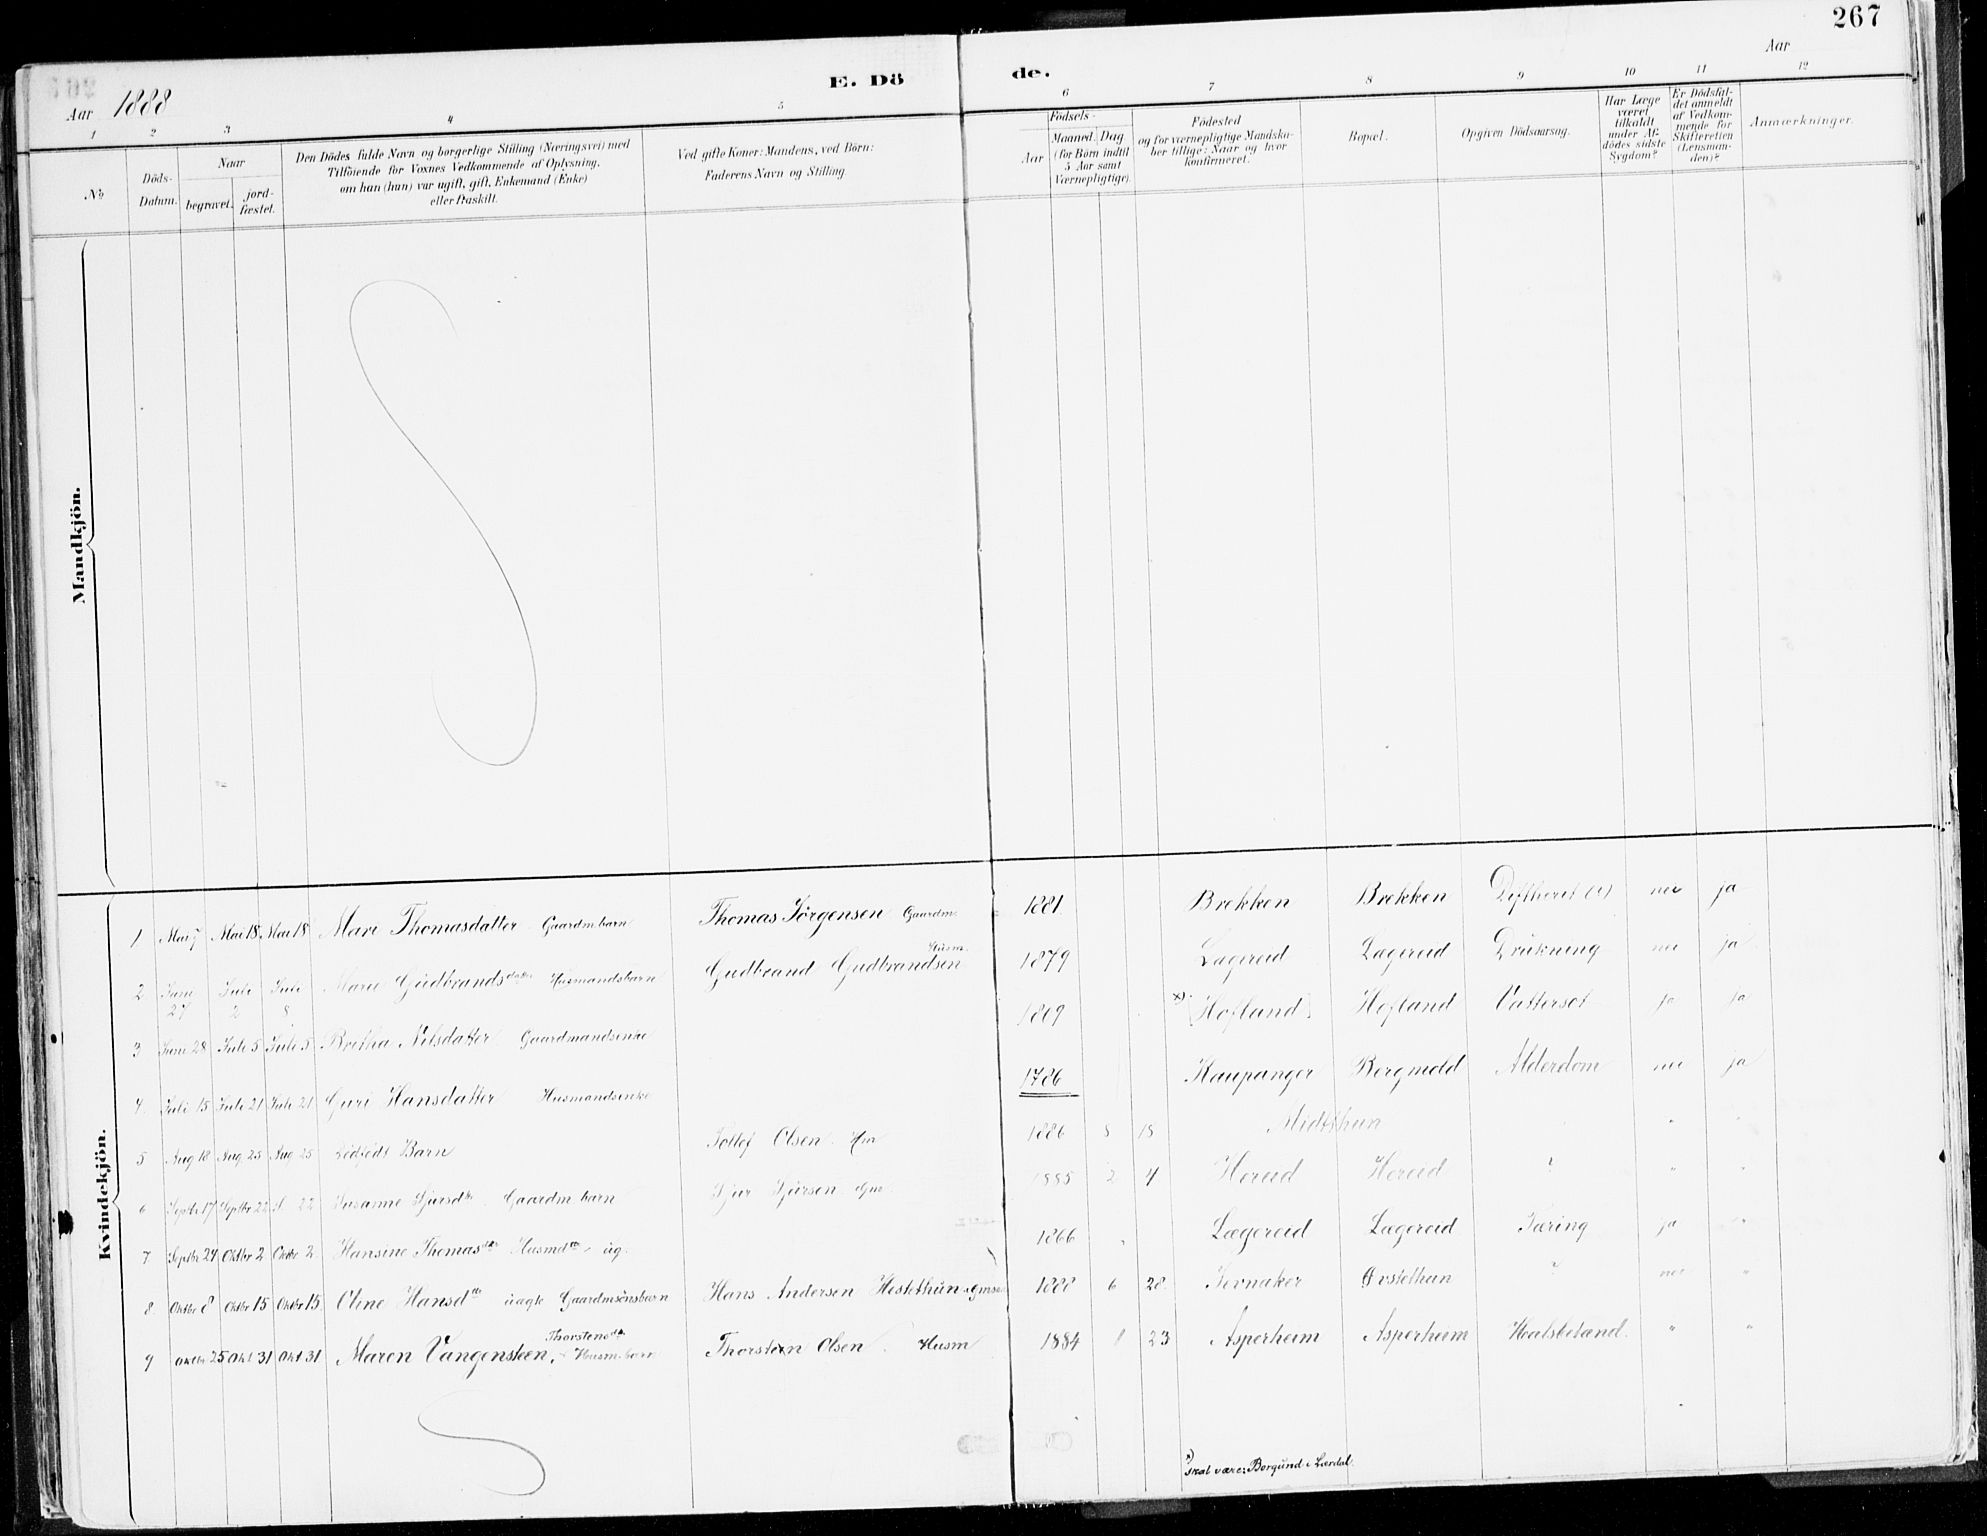 267
E. Dö de.
Aar 1888
Aar
1 2 3 4 5 6 7 8 9 10 11 12
No
Döds-Datum.
Naar
begravet.
jord-fæstet.
Den Dödes fulde Navn og borgerlige Stilling (Næringsvei) med
Tilföiende for Voxnes Vedkommende af Oplysning,
om han (hun) var ugift, gift, Enkemand (Enke)
eller fraskilt.
Ved gifte Koner: Mandens, ved Börn:
Faderens Navn og Stilling
Födsels-
Aar
Maaned. Dag
(for Börn indtil
5 Aar samt
Værnepligtige).
Födested
og for værnepligtige Mandska-
ber tillige: Naar og hvor
konfirmeret.
Bopæl.
Opgiven Dödsaarsag.
Har Læge
været
tilkaldt
under Af-
dödes sidste
Sygdom?
Er Dödsfal-
det anmeldt
af Vedkom-
mende for
Skifteretten
(Lensman-
den)?
Anmærkninger.
Mandkjön.
Kvindekjön.
1 Mai 7 Mai 18 Mai 18 Mari Thomasdatter Gaardm.barn Thomas Jørgensen Gaardm. 1881 Brekken Brekken Diftherit nei ja
2 Juni 27 Juli 2 Juli 8 Mari Gudbrandsdatter Husmandsbarn Gudbrand Gudbrandsen Husm. 1879 Lægreid Lægereid Drukning nei ja
3 Juni 28 Juli 5 Juli 5 Bretha Nilsdatter Gaardmandsenke 1809 x) [Hofland] Hofland Vattersot ja ja
4 Juli 15 Juli 21 Juli 21 Guri Hansdatter Husmandsenke 1786 Kaupanger Bergmeld Alderdom nei ja
5 Aug 18 Aug 25 Aug 25 Dødfødt Barn Tollef Olsen Hm 1886 8 18 Midtthun "
6 Septbr 17 Septbr 22 S. 22 Susanne Sjursdtr Gaardm barn Sjur Sjursen Gm 1885 2 4 Hereid Hereid ? " "
7 Septbr 24 Oktbr 2 Oktbr 2 Hansine Thomasdtr Husmdtr ug. 1866 " Lægereid Lægereid Tæring ja "
8 Oktbr 8 Oktbr 15 Oktbr 15 Oline Hansdtr uægte Gaardmsønsbarn Hans Andersen Hestethun Gmsøn 1888 6 28 Jevnaker Øvstethun ? nei "
9 Oktbr 25 Okt 31 Okt 31 Maren Vangensteen, Thorstensdtr Husm.barn Thorstein Olsen Husm 1884 1 23 Asperheim Asperheim Halsbetænd. " "
x) skal være: Borgund i Lærdal.